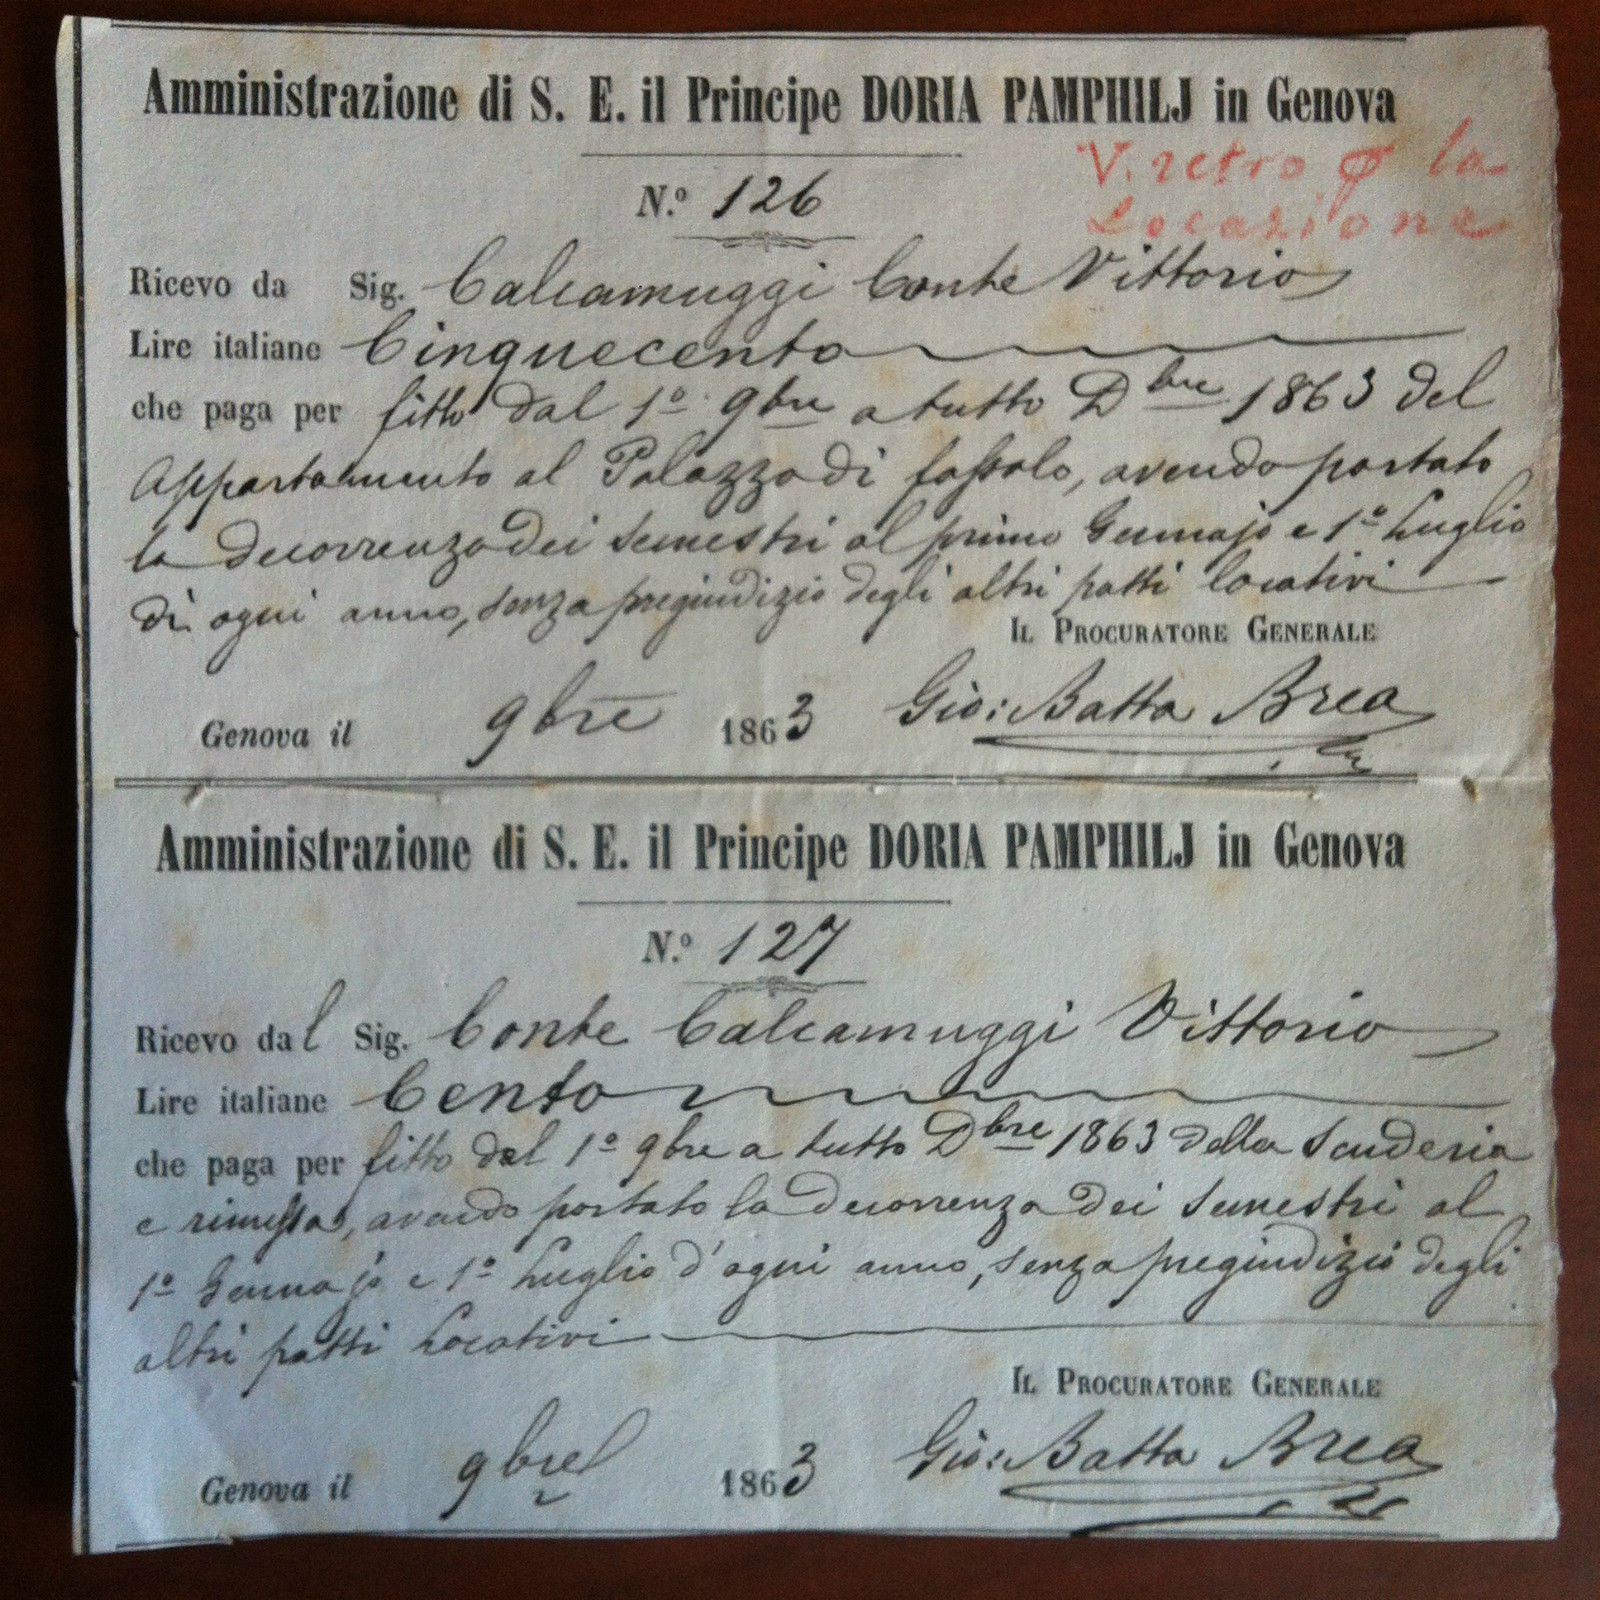 Amministrazione di S. E. il Principe DORIA PAMPHILJ in Genova
V. retro la
Locazione
N.º 126
Ricevo da Sig. Calcamuggi Conte Vittorio
Lire italiane Cinquecento
che paga per fitto dal 1º 9bre a tutto Dbre 1863 del
Appartamento al Palazzo di fassolo, avendo portato
la decorrenza dei semestri al primo Gennajo e 1º Luglio
di ogni anno, senza pregiudizio degli altri patti locativi
IL PROCURATORE GENERALE
Genova il 9bre 1863 Gio: Batta Brea
Amministrazione di S. E. il Principe DORIA PAMPHILJ in Genova
N.º 127
Ricevo dal Sig. Conte Calcamuggi Vittorio
Lire italiane Cento
che paga per fitto dal 1º 9bre a tutto Dbre 1863 della Scuderia
e rimessa, avendo portato la decorrenza dei Semestri al
1º Gennajo e 1º Luglio d'ogni anno, senza pregiudizio degli
altri patti Locativi
IL PROCURATORE GENERALE
Genova il 9bre 1863 Gio: Batta Brea